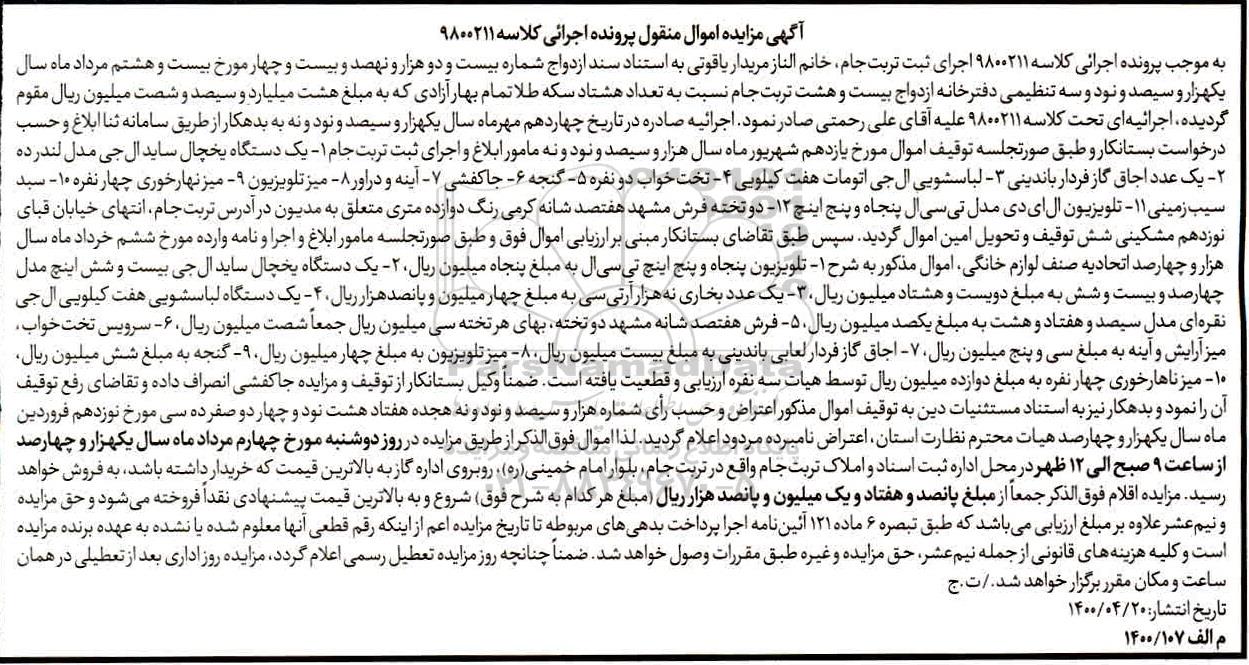 آگهی مزایده اموال منقول پرونده اجرائی کلاسه ۹۸۰۰۲۱۱
به موجب پرونده اجرائی کلاسه ۹۸۰۰۲۱۱ اجرای ثبت تربت‌جام، خانم الناز مریدار یاقوتی به استناد سند ازدواج شماره بیست و دو هزار و نهصد و بیست و چهار مورخ بیست و هشتم مرداد ماه سال
یکهزار و سیصد و نود و سه تنظیمی دفترخانه ازدواج بیست و هشت تربت‌جام نسبت به تعداد هشتاد سکه طلا تمام بهار آزادی که به مبلغ هشت میلیارد و سیصد و شصت میلیون ریال مقوم
گردیده، اجرائیه‌ای تحت کلاسه ۹۸۰۰۲۱۱ علیه آقای علی رحمتی صادر نمود. اجرائیه صادره در تاریخ چهاردهم مهرماه سال یکهزار و سیصد و نود و نه به بدهکار از طریق سامانه ثنا ابلاغ و حسب
درخواست بستانکار و طبق صورتجلسه توقیف اموال مورخ یازدهم شهریور ماه سال هزار و سیصد و نود و نه مامور ابلاغ و اجرای ثبت تربت جام ۱- یک دستگاه یخچال ساید ال‌جی مدل لندر ده
۲- یک عدد اجاق گاز فردار باندینی ۳- لباسشویی ال‌جی اتومات هفت کیلویی ۴- تخت‌خواب دو نفره ۵- گنجه ۶- جاکفشی ۷- آینه و دراور ۸- میز تلویزیون ۹- میز نهارخوری چهار نفره ۱۰- سبد
سیب‌زمینی ۱۱- تلویزیون ال‌ای‌دی مدل تی‌سی‌ال پنجاه و پنج اینچ ۱۲- دو تخته فرش مشهد هفتصد شانه کرمی رنگ دوازده متری متعلق به مدیون در آدرس تربت‌جام، انتهای خیابان قبای
نوزدهم مشکینی شش توقیف و تحویل امین اموال گردید. سپس طبق تقاضای بستانکار مبنی بر ارزیابی اموال فوق و طبق صورتجلسه مامور ابلاغ و اجرا و نامه وارده مورخ ششم خرداد ماه سال
هزار و چهارصد اتحادیه صنف لوازم خانگی، اموال مذکور به شرح ۱- تلویزیون پنجاه و پنج اینچ تی‌سی‌ال به مبلغ پنجاه میلیون ریال، ۲- یک دستگاه یخچال ساید ال‌جی بیست و شش اینچ مدل
چهارصد و بیست و شش به مبلغ دویست و هشتاد میلیون ریال، ۳- یک عدد بخاری نه‌هزار آرتی‌سی به مبلغ چهار میلیون و پانصدهزار ریال، ۴- یک دستگاه لباسشویی هفت کیلویی ال‌جی
نقره‌ای مدل سیصد و هفتاد و هشت به مبلغ یکصد میلیون ریال، ۵- فرش هفتصد شانه مشهد دو تخته، بهای هر تخته سی میلیون ریال جمعاً شصت میلیون ریال، ۶- سرویس تخت‌خواب،
میز آرایش و آینه به مبلغ سی و پنج میلیون ریال، ۷- اجاق گاز فردار لعابی باندینی به مبلغ بیست میلیون ریال، ۸- میز تلویزیون به مبلغ چهار میلیون ریال، ۹- گنجه به مبلغ شش میلیون ریال،
۱۰- میز ناهارخوری چهار نفره به مبلغ دوازده میلیون ریال توسط هیات سه نفره ارزیابی و قطعیت یافته است. ضمناً وکیل بستانکار از توقیف و مزایده جاکفشی انصراف داده و تقاضای رفع توقیف
آن را نمود و بدهکار نیز به استناد مستثنیات دین به توقیف اموال مذکور اعتراض و حسب رأی شماره هزار و سیصد و نود و نه هجده هفتاد هشت نود و چهار دو صفر ده سی مورخ نوزدهم فروردین
ماه سال یکهزار و چهارصد هیات محترم نظارت استان، اعتراض نامبرده مردود اعلام گردید. لذا اموال فوق‌الذکر از طریق مزایده در روز دوشنبه مورخ چهارم مرداد ماه سال یکهزار و چهارصد
از ساعت ۹ صبح الی ۱۲ ظهر در محل اداره ثبت اسناد و املاک تربت‌جام واقع در تربت‌جام، بلوار امام خمینی(ره)، روبروی اداره گاز به بالاترین قیمت که خریدار داشته باشد، به فروش خواهد
رسید. مزایده اقلام فوق‌الذکر جمعاً از مبلغ پانصد و هفتاد و یک میلیون و پانصد هزار ریال (مبلغ هر کدام به شرح فوق) شروع و به بالاترین قیمت پیشنهادی نقداً فروخته می‌شود و حق مزایده
و نیم‌عشر علاوه بر مبلغ ارزیابی می‌باشد که طبق تبصره ۶ ماده ۱۲۱ آئین‌نامه اجرا پرداخت بدهی‌های مربوطه تا تاریخ مزایده اعم از اینکه رقم قطعی آنها معلوم شده یا نشده به عهده برنده مزایده
است و کلیه هزینه‌های قانونی از جمله نیم‌عشر، حق مزایده و غیره طبق مقررات وصول خواهد شد. ضمناً چنانچه روز مزایده تعطیل رسمی اعلام گردد، مزایده روز اداری بعد از تعطیلی در همان
ساعت و مکان مقرر برگزار خواهد شد./ت.ج
تاریخ انتشار: ۱۴۰۰/۰۴/۲۰
م الف ۱۴۰۰/۱۰۷
ParsNamadData
پایگاه اطلاع رسانی مناقصه و مزایده
۰۲۱-۸۸۳۴۹۶۷۰-۵